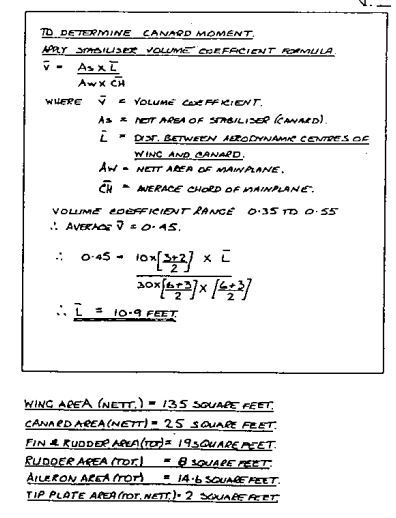 TO DETERMINE CANARD MOMENT.
APPLY STABILISER VOLUME COEFFICIENT FORMULA.
V̄ = As x L̄
Aw x C̄H̄
WHERE V̄ = VOLUME COEFFICIENT.
As = NETT AREA OF STABILISER (CANARD).
L̄ = DIST. BETWEEN AERODYNAMIC CENTRES OF
WING AND CANARD.
Aw = NETT AREA OF MAINPLANE.
C̄H̄ = AVERAGE CHORD OF MAINPLANE.
VOLUME COEFFICIENT RANGE 0.35 TO 0.55
∴ AVERAGE V̄ = 0.45.
∴ 0.45 = 10x[3+2/2] x L̄
30x[6+3/2] x [6+3/2]
∴ L̄ = 10.9 FEET.
WING AREA (NETT.) = 135 SQUARE FEET.
CANARD AREA (NETT) = 25 SQUARE FEET.
FIN & RUDDER AREA (TOT) = 19 SQUARE FEET.
RUDDER AREA (TOT.) = 8 SQUARE FEET.
AILERON AREA (TOT) = 14.6 SQUARE FEET.
TIP PLATE AREA (TOT. NETT.) = 2 SQUARE FEET